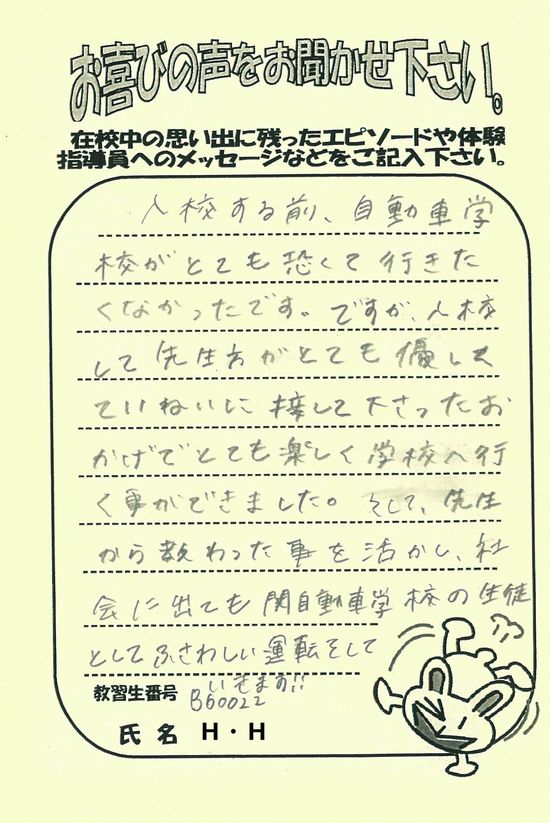 お喜びの声をお聞かせ下さい。
在校中の思い出に残ったエピソードや体験
指導員へのメッセージなどをご記入下さい。
入校する前、自動車学
校がとても恐くて行きた
くなかったです。ですが、入校
して先生方がとても優しく
ていねいに接して下さったお
かげでとても楽しく学校へ行
く事ができました。そして、先生
から教わった事を活かし、社
会に出ても関自動車学校の生徒
としてふさわしい運転をして
いきます!!
教習生番号 B60022
氏名 H・H